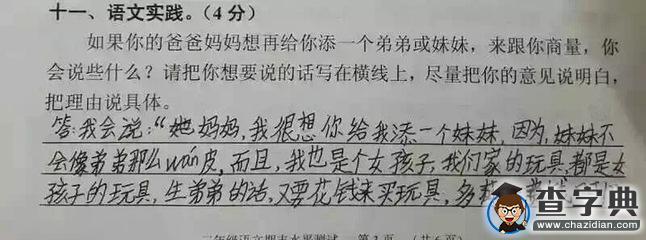 十一、语文实践。(4分)
如果你的爸爸妈妈想再给你添一个弟弟或妹妹，来跟你商量，你
会说些什么？请把你想要说的话写在横线上，尽量把你的意见说明白，
把理由说具体。
答：我会说：“她妈妈，我很想你给我添一个妹妹，因为，妹妹不
会像弟弟那么wán皮，而且，我也是个女孩子，我们家的玩具，都是女
孩子的玩具，生弟弟的话，又要花钱来买玩具，多
二年级语文期末水平测试 第3页 (共6页)
查字典
www.chazidian.com